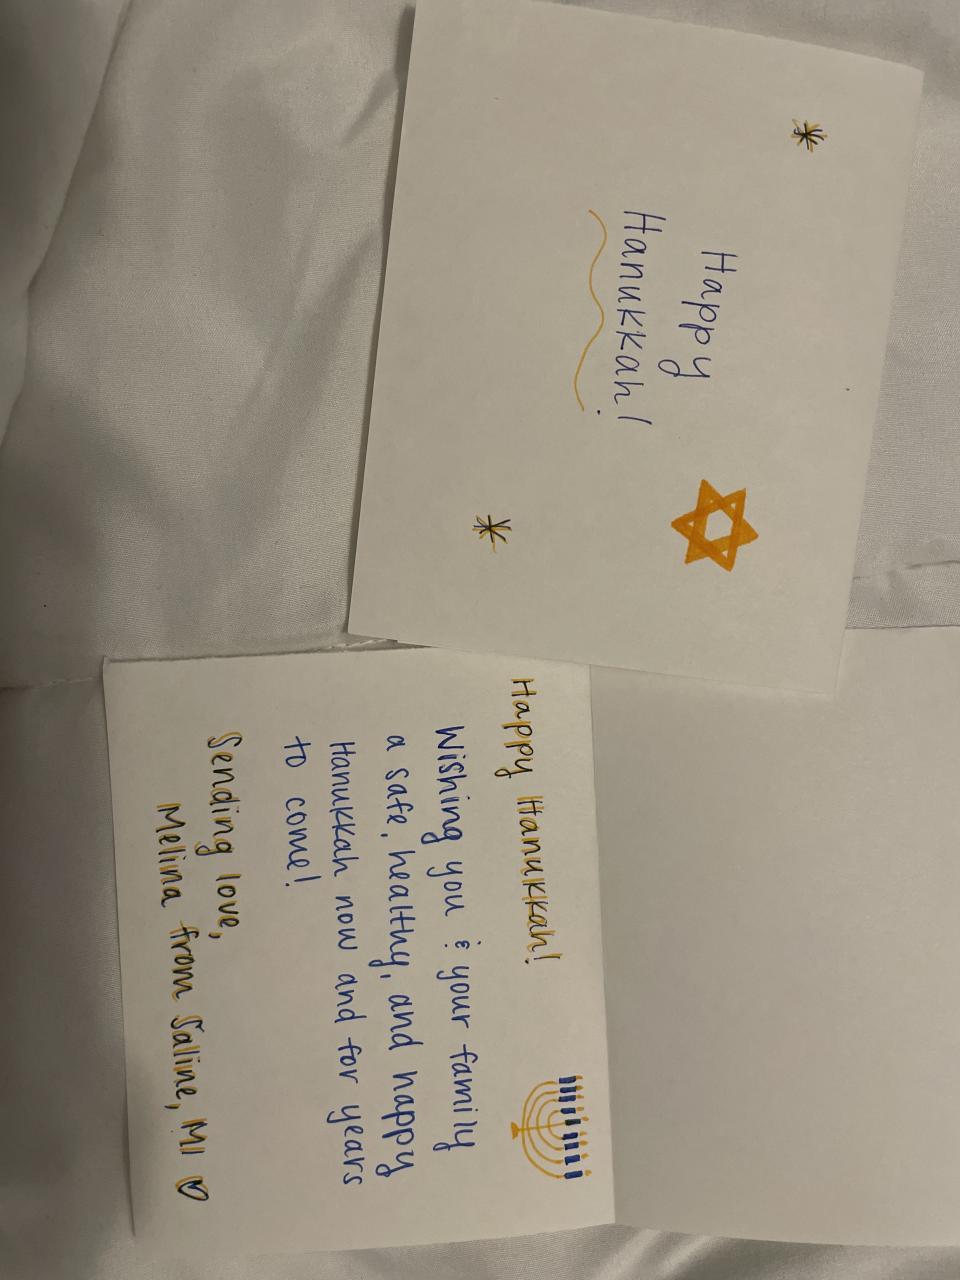 Happy
Hanukkah!
Happy Hanukkah!
Wishing you & your family
a safe, healthy, and happy
Hanukkah now and for years
to come!
Sending love,
Melina from Saline, MI ♡